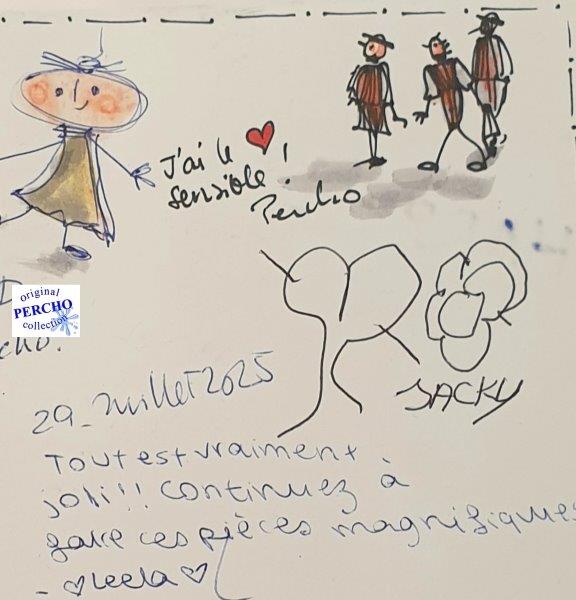 J'ai le ❤
sensible !
Percho
original
PERCHO
collection
cho.
JACKY
29 Juillet 2025
Tout est vraiment
joli!! Continuez à
faire ces pièces magnifiques
- ♡Leela♡